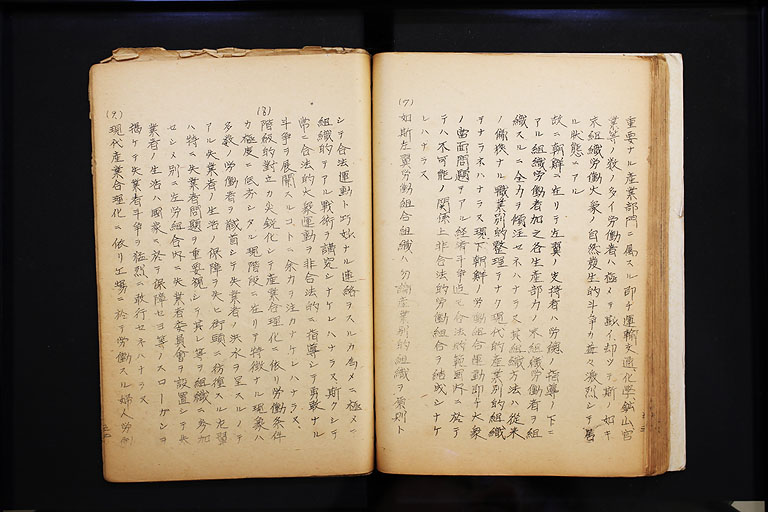 重要ナル産業部門ニ属スル即チ運輸交通化学鉱山官
業等ノ数ノ多イ労働者ハ極メテ尠イ却ツテ斯ノ如キ
未組織労働大衆ノ自然発生的斗争カ益々激烈シテ
ル状態テアル
故ニ朝鮮ニ在リテ左翼ノ支持者ハ労総ノ指導ノ下ニ
アル組織労働者加之各生産部カノ未組織労働者ヲ組
織スルニ全力ヲ傾注セネハナラヌ其組織方法ハ従来
ノ偏狭ナル職業別的整理テナク現代的産業別的組織
テナラネハナラヌ現下朝鮮ノ労働組合運動即チ大衆
ノ当面問題テアル経済斗争迄モ合法的範囲内ニ於テ
テハ不可能ノ関係上非合法的労働組合ヲ結成シナケ
レハナラス
(7)
如斯左翼労働組合組織ハ勿論産業別的組織ヲ原則ト
シテ合法運動ト巧妙ナル連絡ヲスルカ為メニ極メテ
組織的テアル戦術ヲ講究シナケレハナラヌ斯クシテ
常ニ合法的大衆運動ヲ非合法的ニ指導シテ勇敢ナル
斗争ヲ展開スルコトニ余力ヲ注カナケレハナラヌ、
(8)
階級的対立カ尖鋭化シテ産業合理化ニ依リ労働条件
カ極度ニ低劣シタル現階段ニ在リテ特徴ナル現象ハ
多数ノ労働者ヲ馘首シテ失業者ノ洪水ヲ呈スルノテ
アル失業者ノ生活ノ保障ヲ失ヒ街頭ニ彷徨スル左翼
ハ特ニ失業者問題ヲ重要視シテ其レ等ヲ組織ニ参加
センメ別ニ左労組合内ニ失業者委員會ヲ設置シテ失
業者ノ生活ハ國家ニ於テ保障セヨ等ノスローガンヲ
掲ケテ失業者斗争ヲ猛烈ニ敢行セネハナラス
(9)
現代産業合理化ニ依リ工場ニ於テ労働スル婦人労働